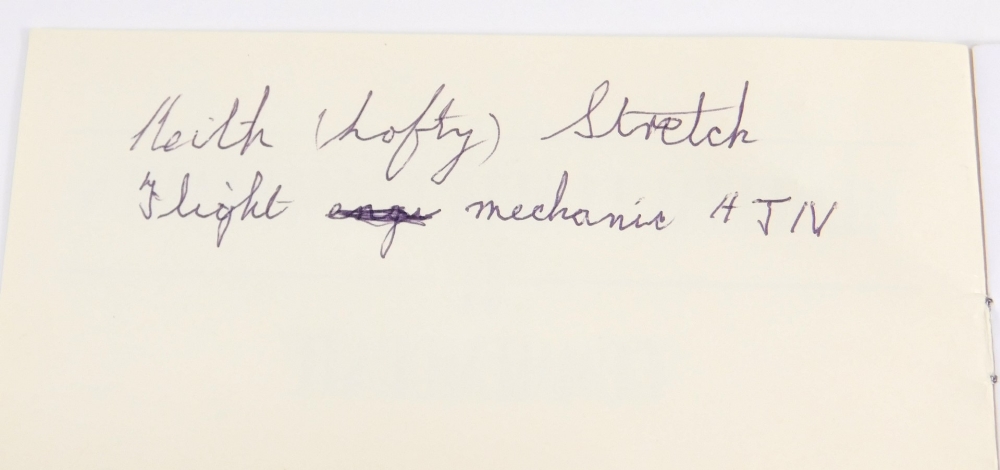 Keith (Lofty) Stretch
Flight enge mechanic HJIV